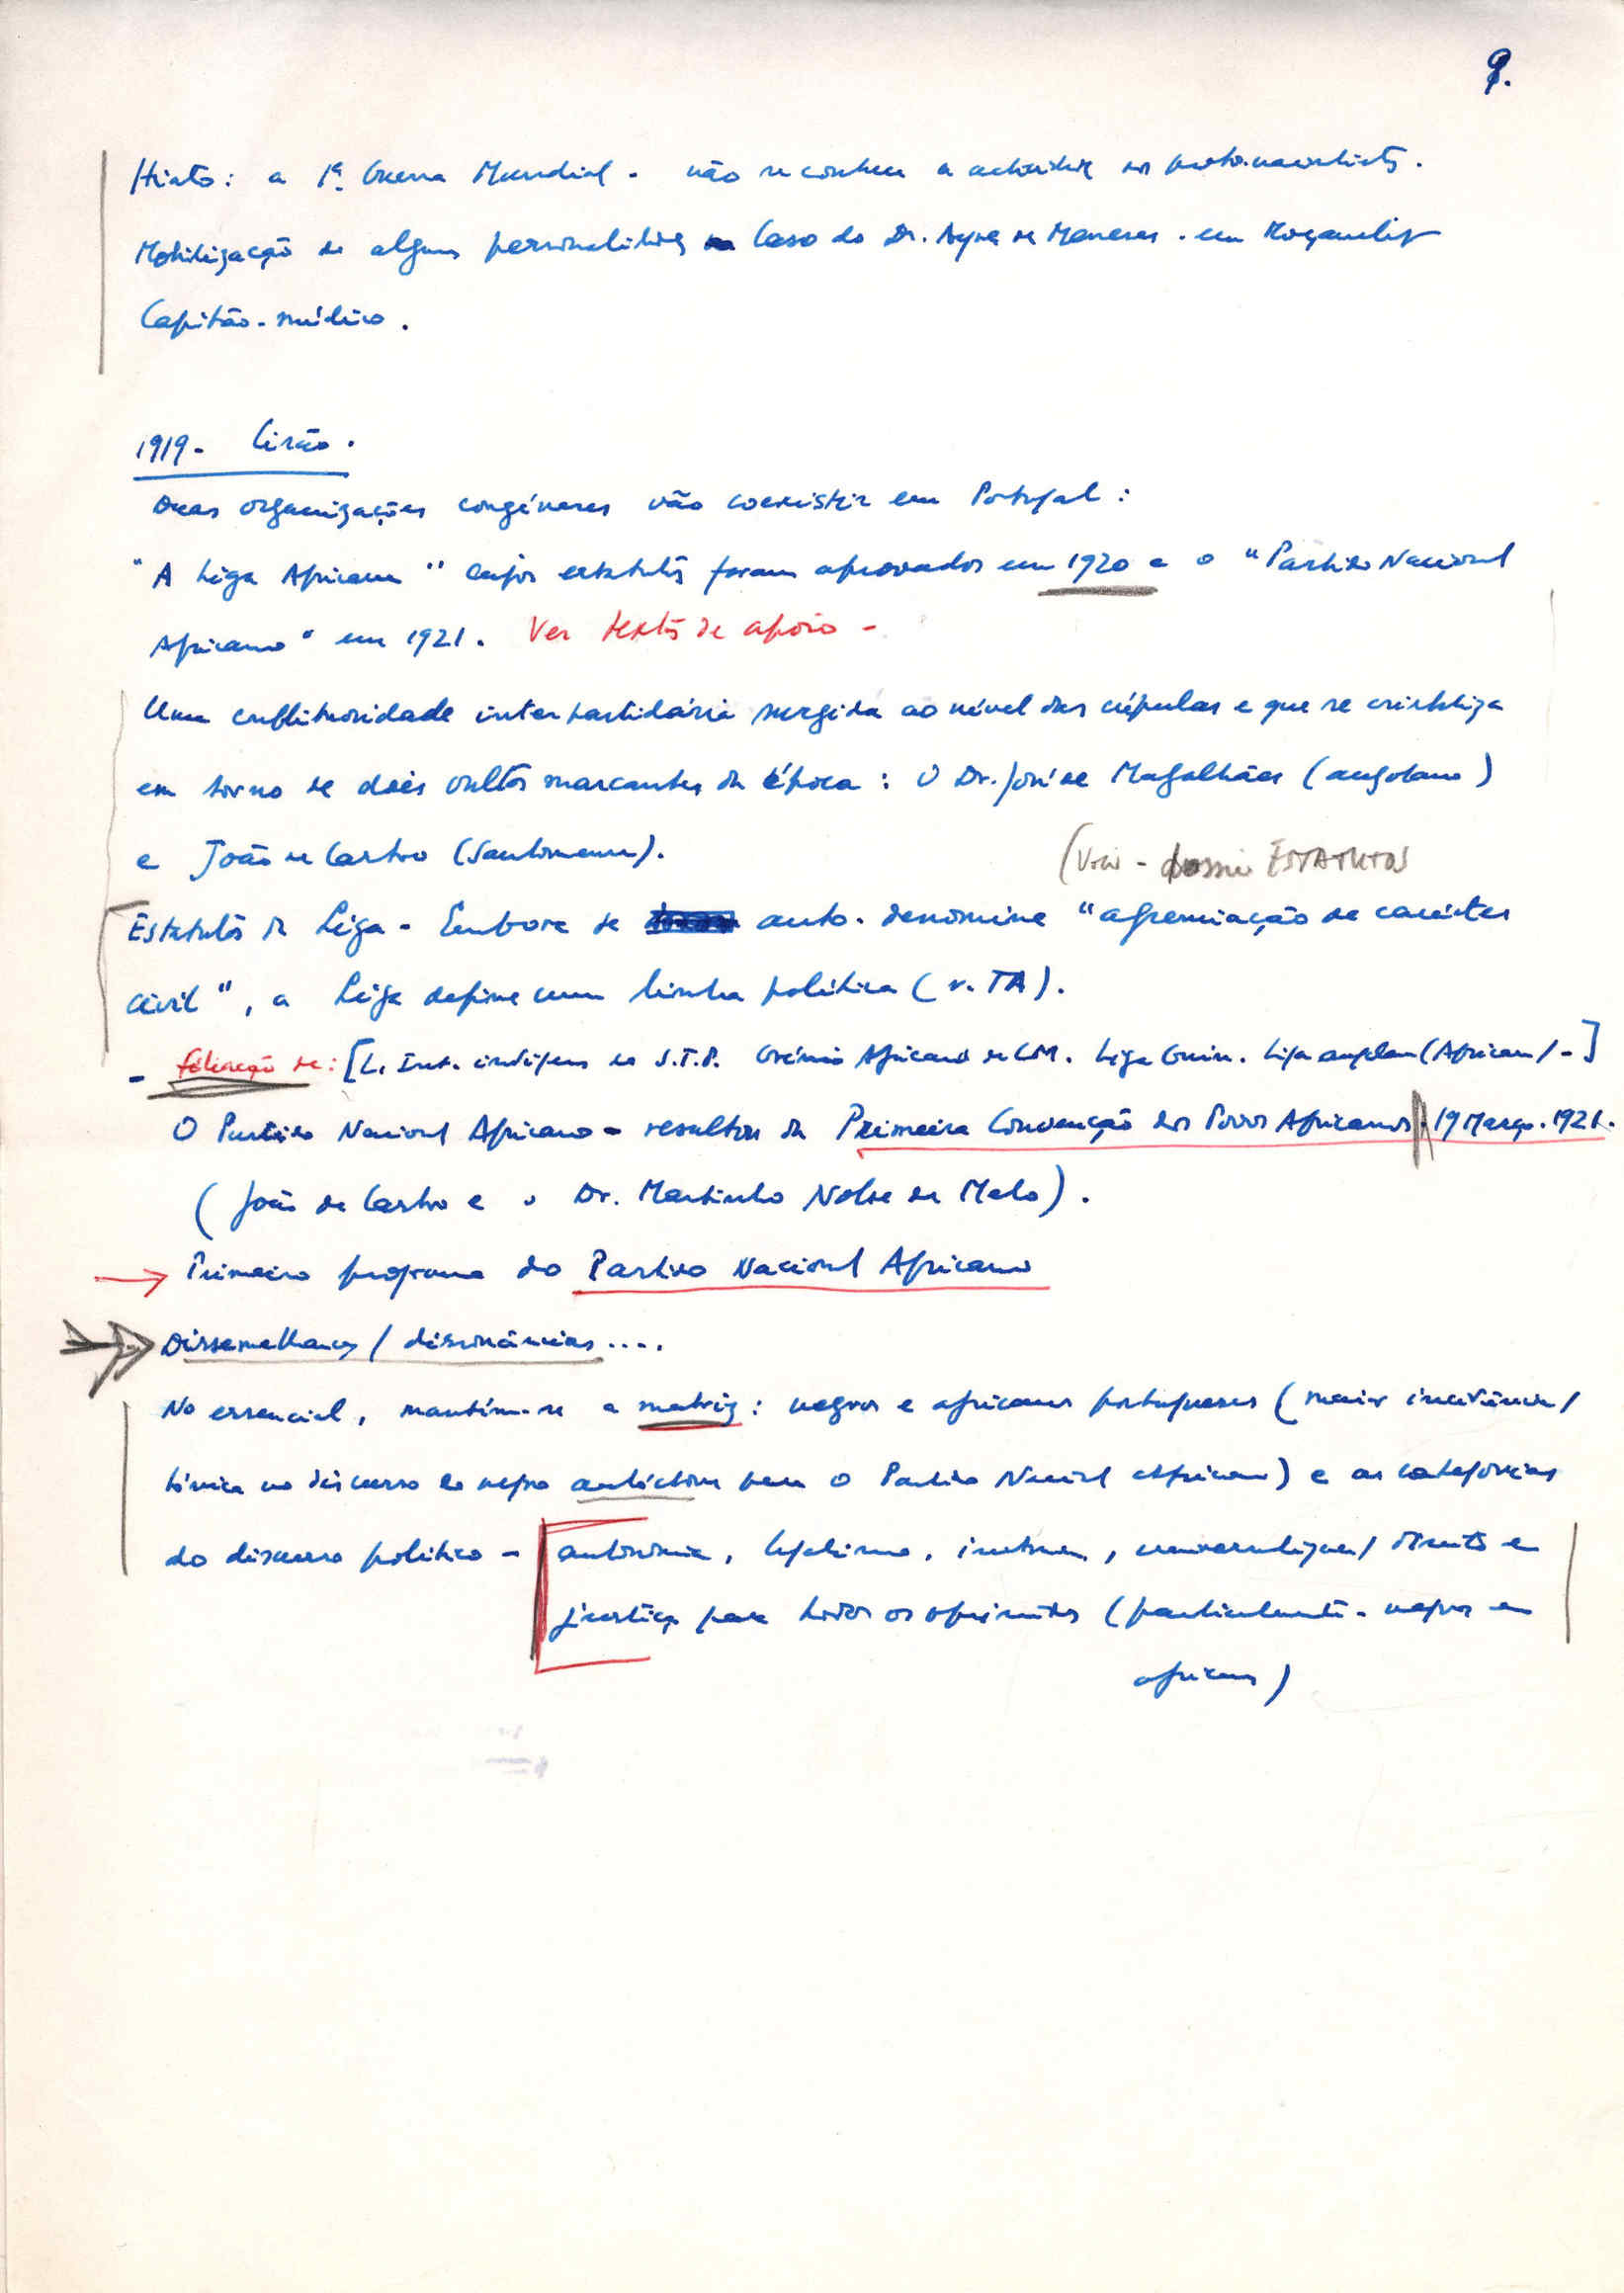 9.
Hiato: a 1ª Guerra Mundial - não se conhece a actividade dos proto-nacionalistas.
Mobilização de algumas personalidades Caso do Dr. Ayres de Menezes - em Moçambique
Capitão-médico.
1919 - Cisão.
Duas organizações congéneres vão coexistir em Portugal:
"A Liga Africana" cujos estatutos foram aprovados em 1920 e o "Partido Nacional
Africano" em 1921. Ver textos de apoio -
Uma conflituosidade interpartidária surgida ao nível das cúpulas e que se cristaliza
em torno de dois vultos marcantes da época: O Dr. José de Magalhães (angolano)
e João de Castro (Santomense).
(Voir - dossier ESTATUTOS
Estatutos da Liga - Embora se auto-denomine "agremiação de carácter
civil", a Liga define uma linha política (v. TA).
- federação de: [L. Int. indígenas de S.T.P. Grémio Africano de LM. Liga Guin. Liga angolana (Africana/-]
O Partido Nacional Africano - resultou da Primeira Convenção dos Povos Africanos 19 Março. 1921.
(João de Castro e o Dr. Martinho Nobre de Melo).
Primeiro programa do Partido Nacional Africano
Dissemelhanças / dissonâncias ....
No essencial, mantém-se a matriz: negros e africanos portugueses (maior incidência/
tónica no discurso do negro autóctone para o Partido Nacional Africano) e as categorias
do discurso político - autonomia, legalismo, , direito e
justiça para todos os oprimidos (particularmente - negros e
africanos)